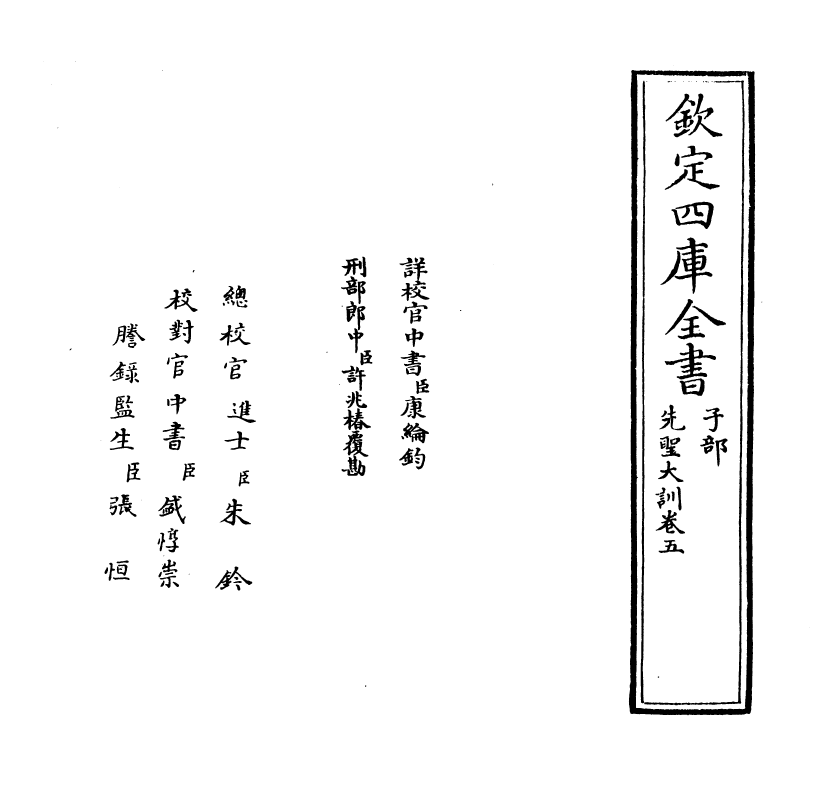 欽定四庫全書
子部
先聖大訓卷五
詳校官中書臣康綸鈞
刑部郎中臣許兆椿覆勘
總校官進士臣朱鈐
校對官中書臣盛惇崇
謄錄監生臣張恒